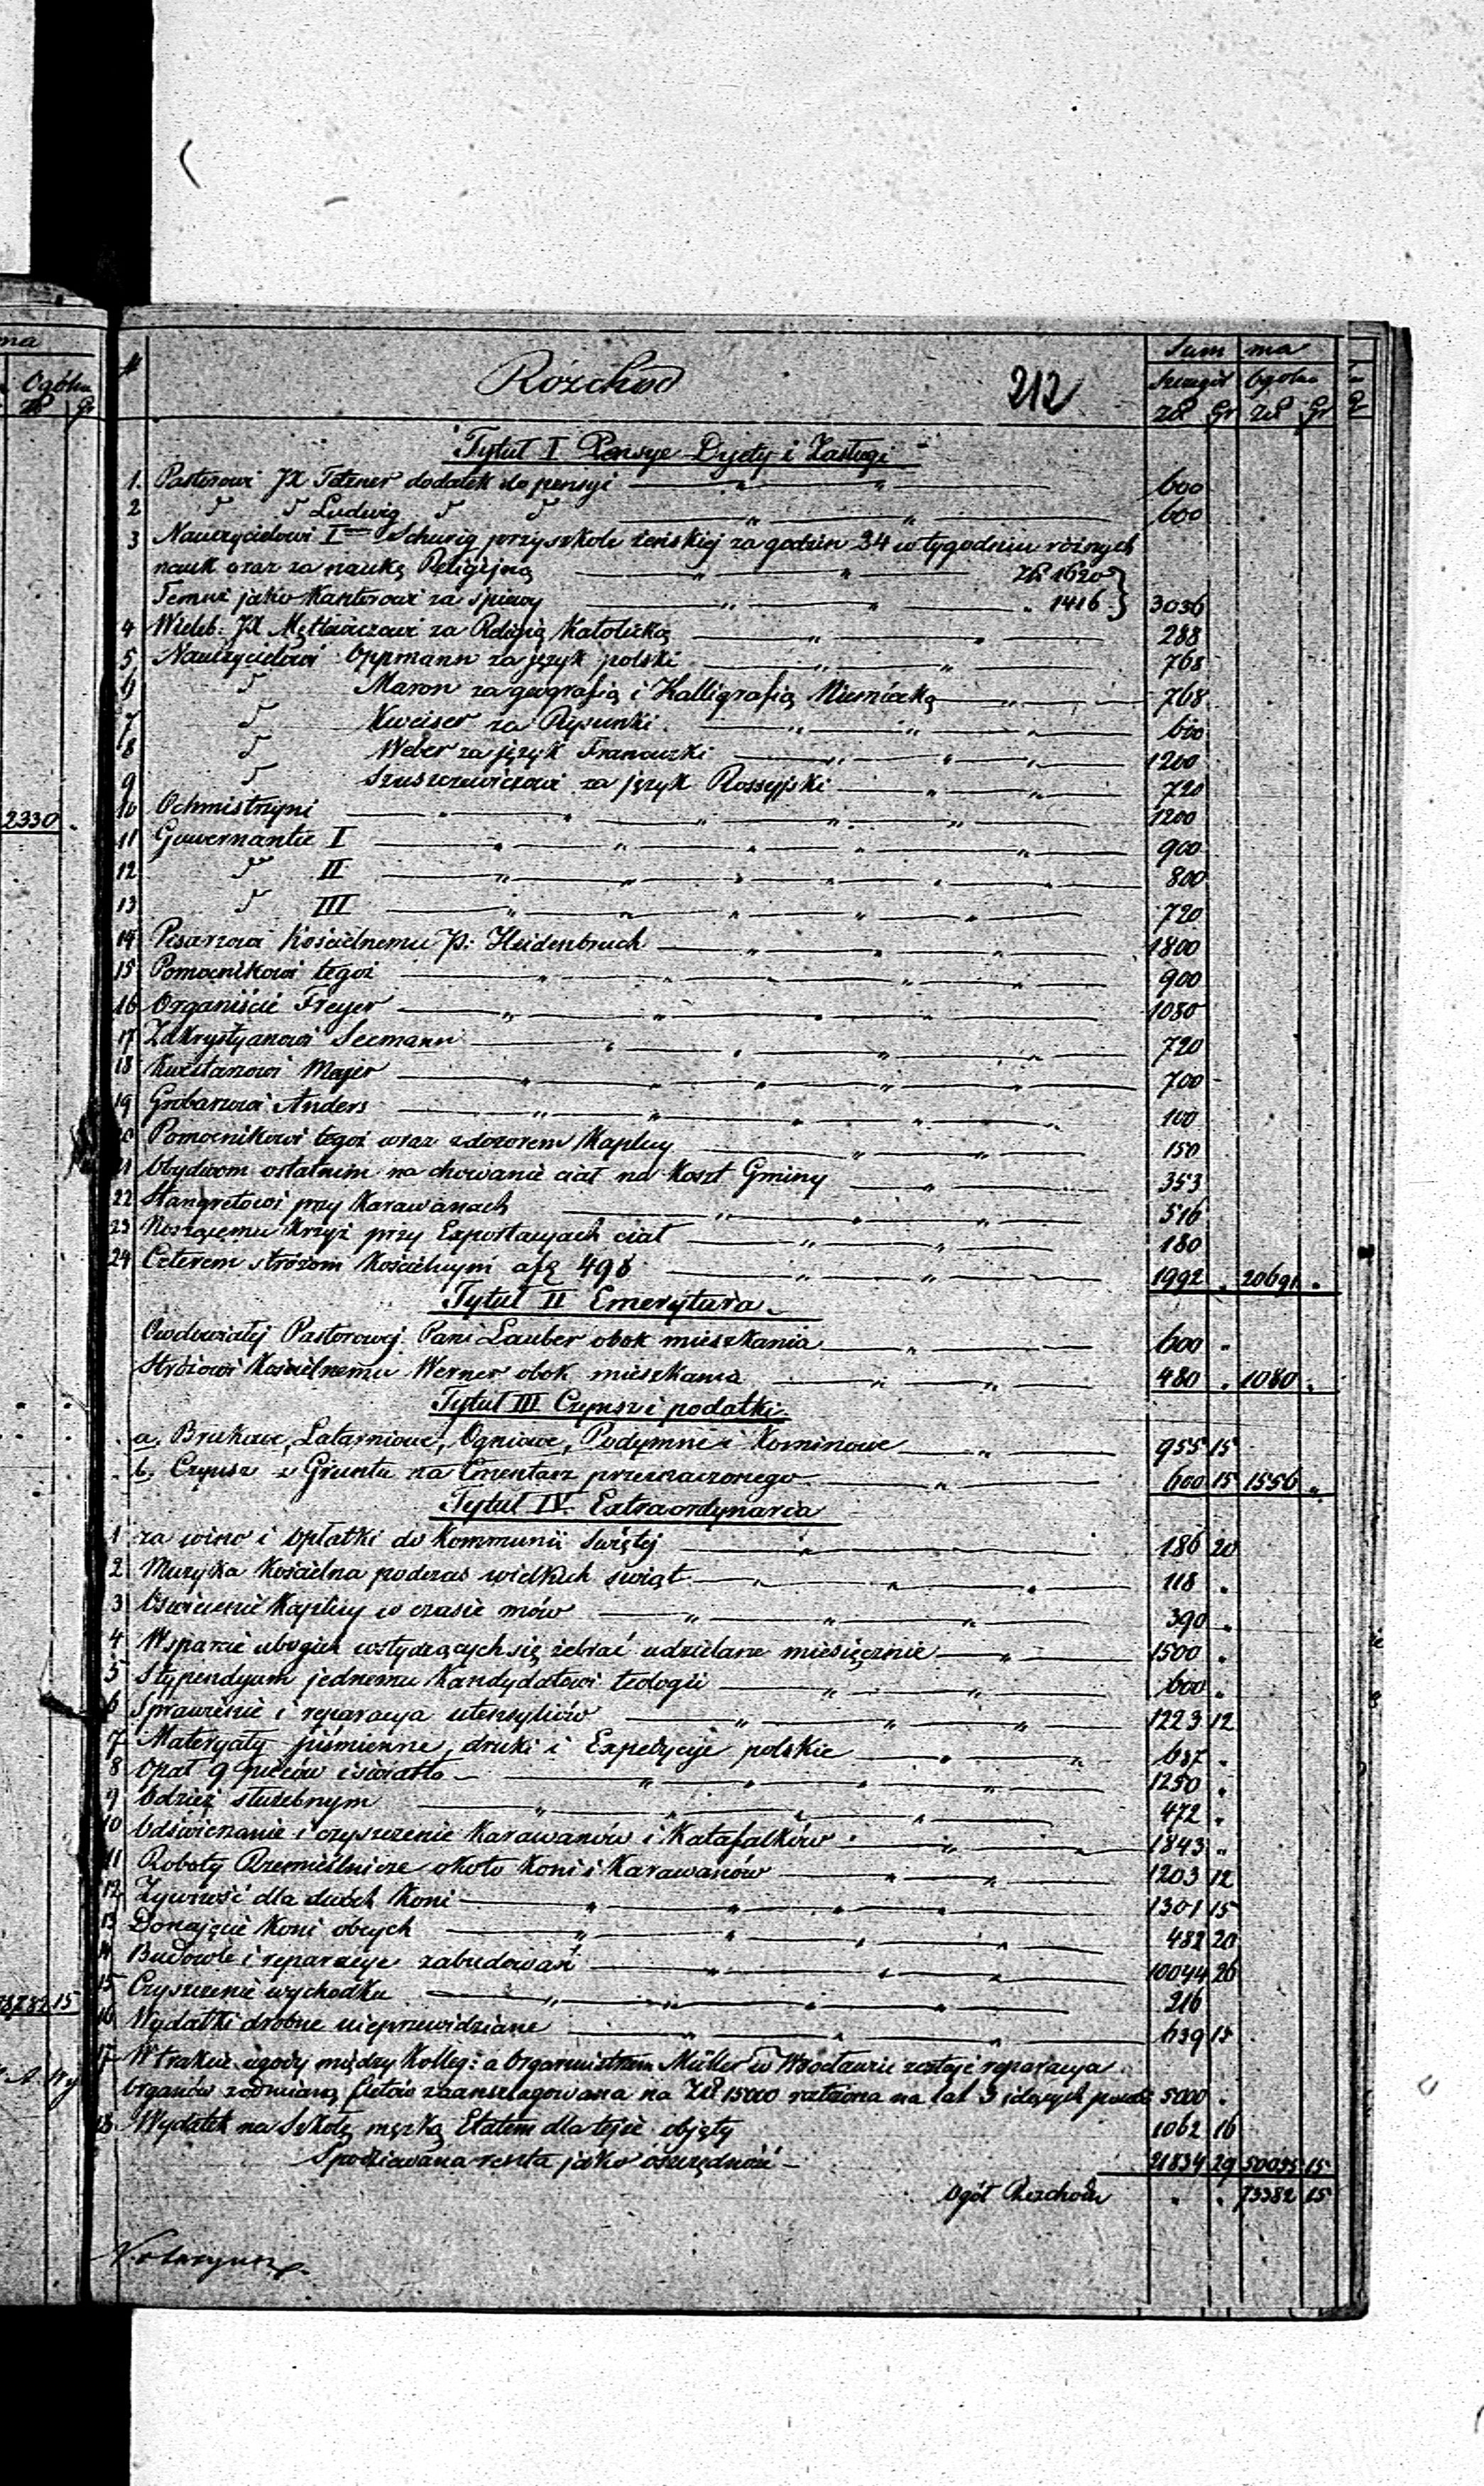 na
Ogólna
zł Gr
2330
78782 15
№ Rozchód 212 Summa
Szczegół Ogólna
zł Gr zł Gr
Tytuł I Pensye Dyety i Zasługi
1. Pastorowi JX Tetzner dodatek do pensyi 600
2 " " Ludwig " " 600
3 Nauczycielowi I Schurig przy szkole żeńskiej za godzin 34 w tygodniu różnych
nauk oraz za naukę Religijną Zł 1620
Temuż jako Kantorowi za śpiewy " 1416 } 3036
4 Wieleb. JX za Religią Katolicką 288
5 Nauczycielowi Oppmann za język polski 768
6 " Maron za geografią i Kalligrafią Niemiecką 768
7 " Kweiser za Rysunki 600
8 " Weber za język Francuzki 1200
9 " Szuszczewiczowi za język Rossyjski 720
10 Ochmistrzyni 1200
11 Guwernantce I 900
12 " II 800
13 " III 720
14 Pisarzowi Kościelnemu p: Heidenbruch 1800
15 Pomocnikowi tegoż 900
16 Organiście Freyer 1080
17 Zakrystyanowi Seemann 720
18 Kwestarzowi Majer 700
19 Grobarzowi Anders 100
20 Pomocnikowi tegoż wraz z dozorem Kaplicy 150
21 Obydwom ostatnim na chowanie ciał na koszt Gminy 353
22 Stangretowi przy Karawanach 516
23 Noszącemu Krzyż przy Exportacyach ciał 180
24 Czterem stróżom Kościelnym a fl 498 1992 " 20691 "
Tytuł II Emerytura
Owdowiałej Pastorowej Pani Lauber obok mieszkania 600 "
Stróżowi Kościelnemu Werner obok mieszkania 480 " 1080 "
Tytuł III Czynsz i podatki
a. Brukowe, Latarniowe, Ogniowe, Podymne i Kominowe 955 15
b. Czynsz z Gruntu na Cmentarz przeznaczonego 600 15 1556 "
Tytuł IV. Extraordynaria
1 za wino i opłatki do Kommunii Świętej 186 20
2 Muzyka Kościelna podczas wielkich świąt 118 "
3 Oświecenie Kaplicy w czasie mów 390 "
4 Wsparcie ubogich wstydzących się żebrać udzielane miesięcznie 1500 "
5 Stypendyum jednemu Kandydatowi teologii 600 "
6 Sprawienie i reparacya utensyliów 1223 12
7 Materyały piśmienne, druki i Expedycye polskie 637 "
8 Opał 9 pieców i światło 1250 "
9 Odzież służebnym 472 "
10 Odświeżanie i czyszczenie Karawanów i Katafalków 1843 "
11 Roboty Rzemieślnicze około koni i Karawanów 1203 12
12 Żywność dla dwóch Koni 1301 15
13 Donajęcie Koni obcych 482 20
14 Budowle i reparacye zabudowań 10044 26
15 Czyszczenie wychodku 216
16 Wydatki drobne nieprzewidziane 639 15
17 W trakcie ugody między Kolleg: a Organmistrzem Müller w Wrocławiu zostaje reparacya
Organów zodmianą fletów zaanszlagowana na Zł 15000 rozłożona na lat 3 idących 5000 "
18 Wydatek na Szkołę męzką Etatem dla tejże objęty 1062 16
Spodziewana reszta jako oszczędność 21834 29 50055 15
Ogół Rozchodu " " 73382 15